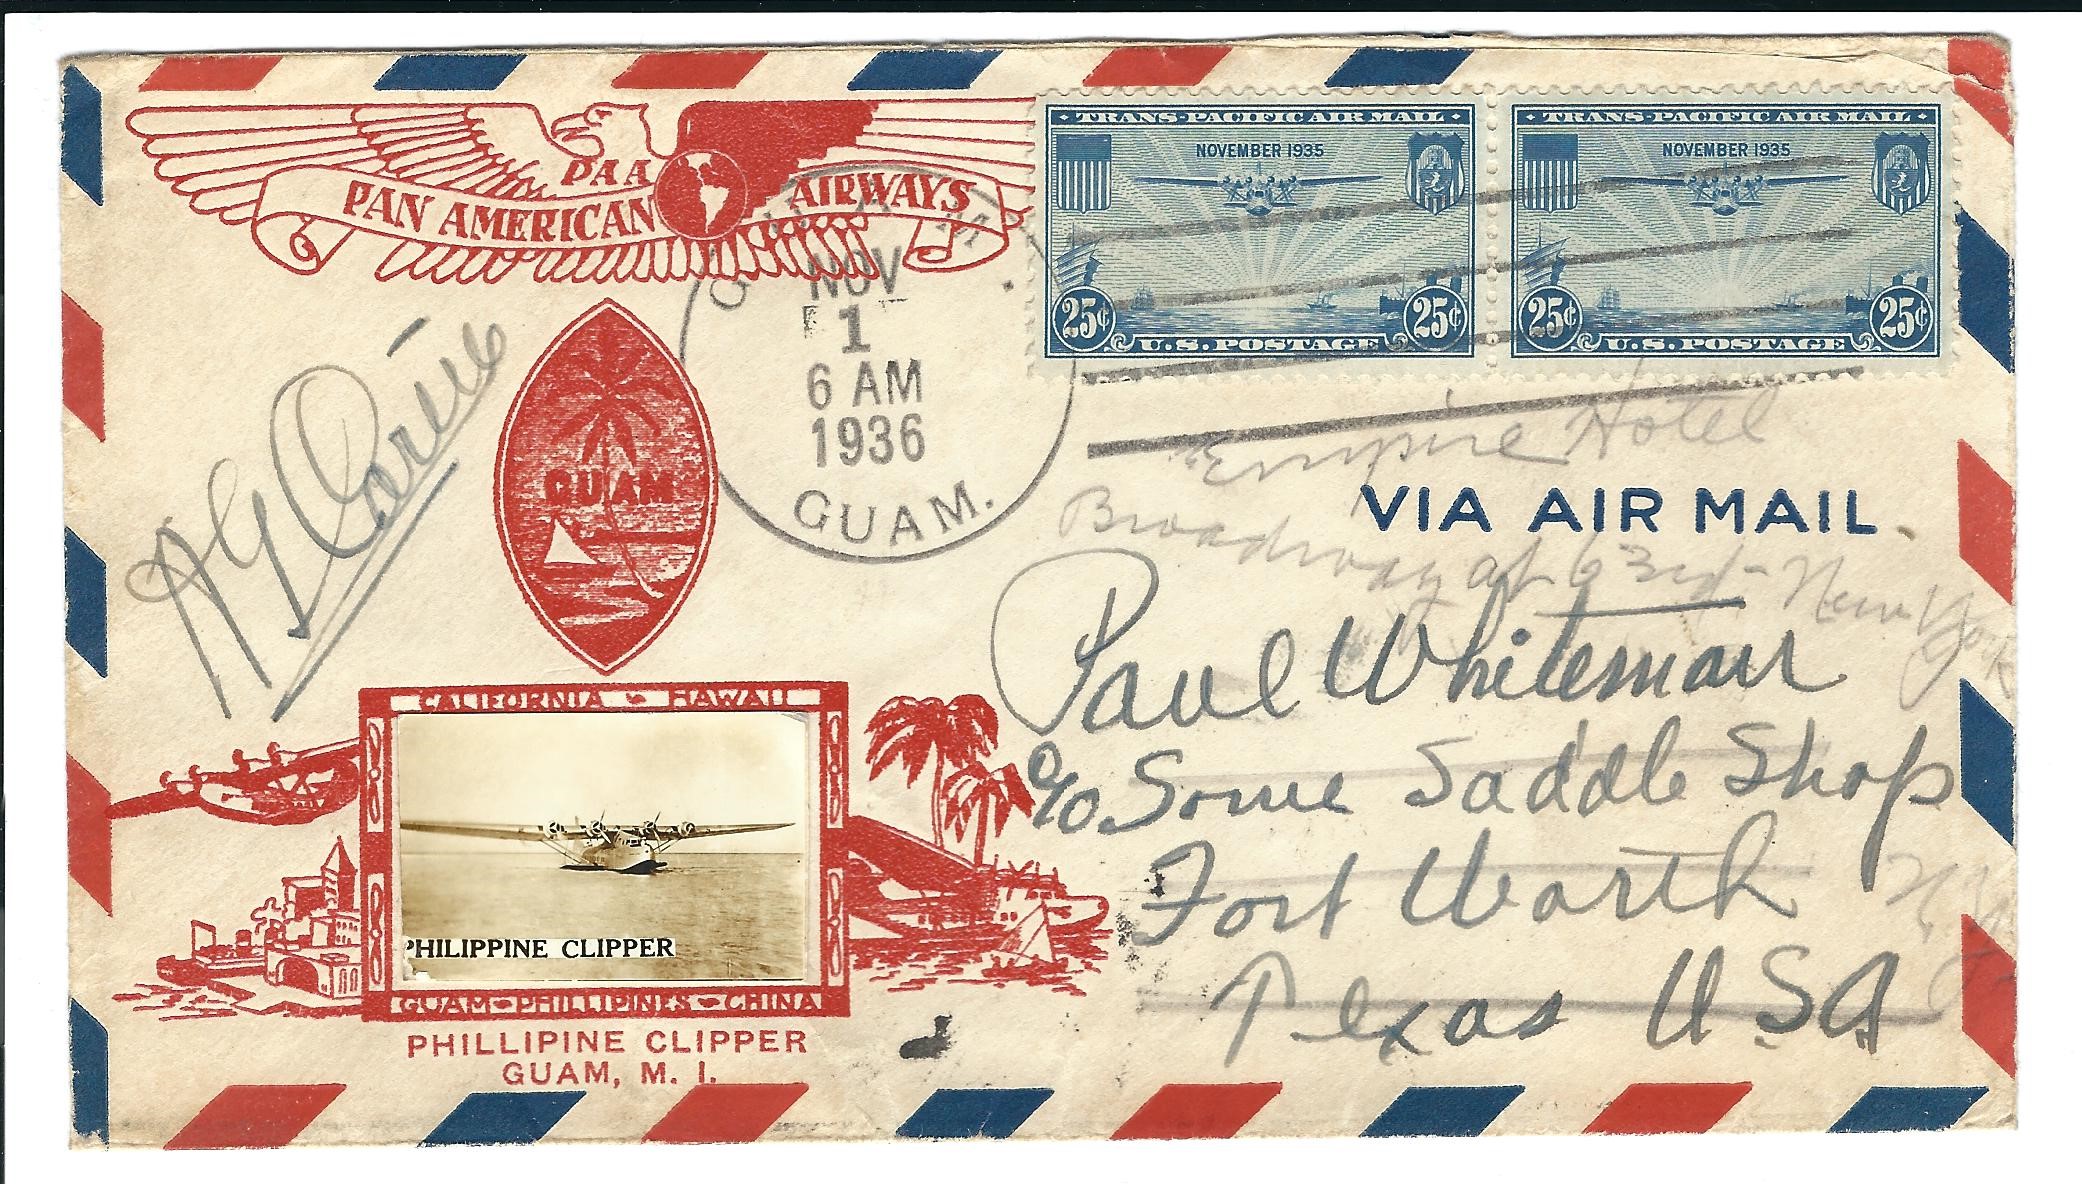 PAA
PAN AMERICAN AIRWAYS
TRANS-PACIFIC AIR MAIL
NOVEMBER 1935
25¢ 25¢
U.S. POSTAGE
TRANS-PACIFIC AIR MAIL
NOVEMBER 1935
25¢ 25¢
U.S. POSTAGE
GUAM
NOV
1
6 AM
1936
GUAM.
GUAM
Empire Hotel
VIA AIR MAIL
Broadway at 63rd - New York
Paul Whiteman
c/o Some Saddle Shop
Fort Worth
Texas USA
CALIFORNIA HAWAII
PHILIPPINE CLIPPER
GUAM PHILLIPINES CHINA
PHILLIPINE CLIPPER
GUAM, M. I.